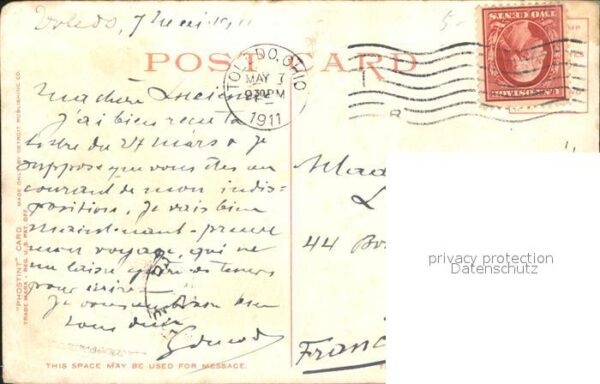 Toledo, 7 mai 1911
POST CARD
TOLEDO, OHIO
MAY 7
9 30 PM
1911
TWO CENTS
Ma chère Lucienne
J'ai bien reçu ta
lettre du 27 mars & je
suppose que vous êtes au
courant de mon indis=
position. Je vais bien
maintenant - 
mon voyage, qui ne
me laisse guère de temps
pour écrire.
Je vous
tous deux
Edouard
Mad
L
44 Bo
Franc
privacy protection
Datenschutz
"PHOSTINT" CARD.
TRADE MARK - REG. U.S. PAT. OFF.
MADE ONLY BY DETROIT PUBLISHING CO.
THIS SPACE MAY BE USED FOR MESSAGE.